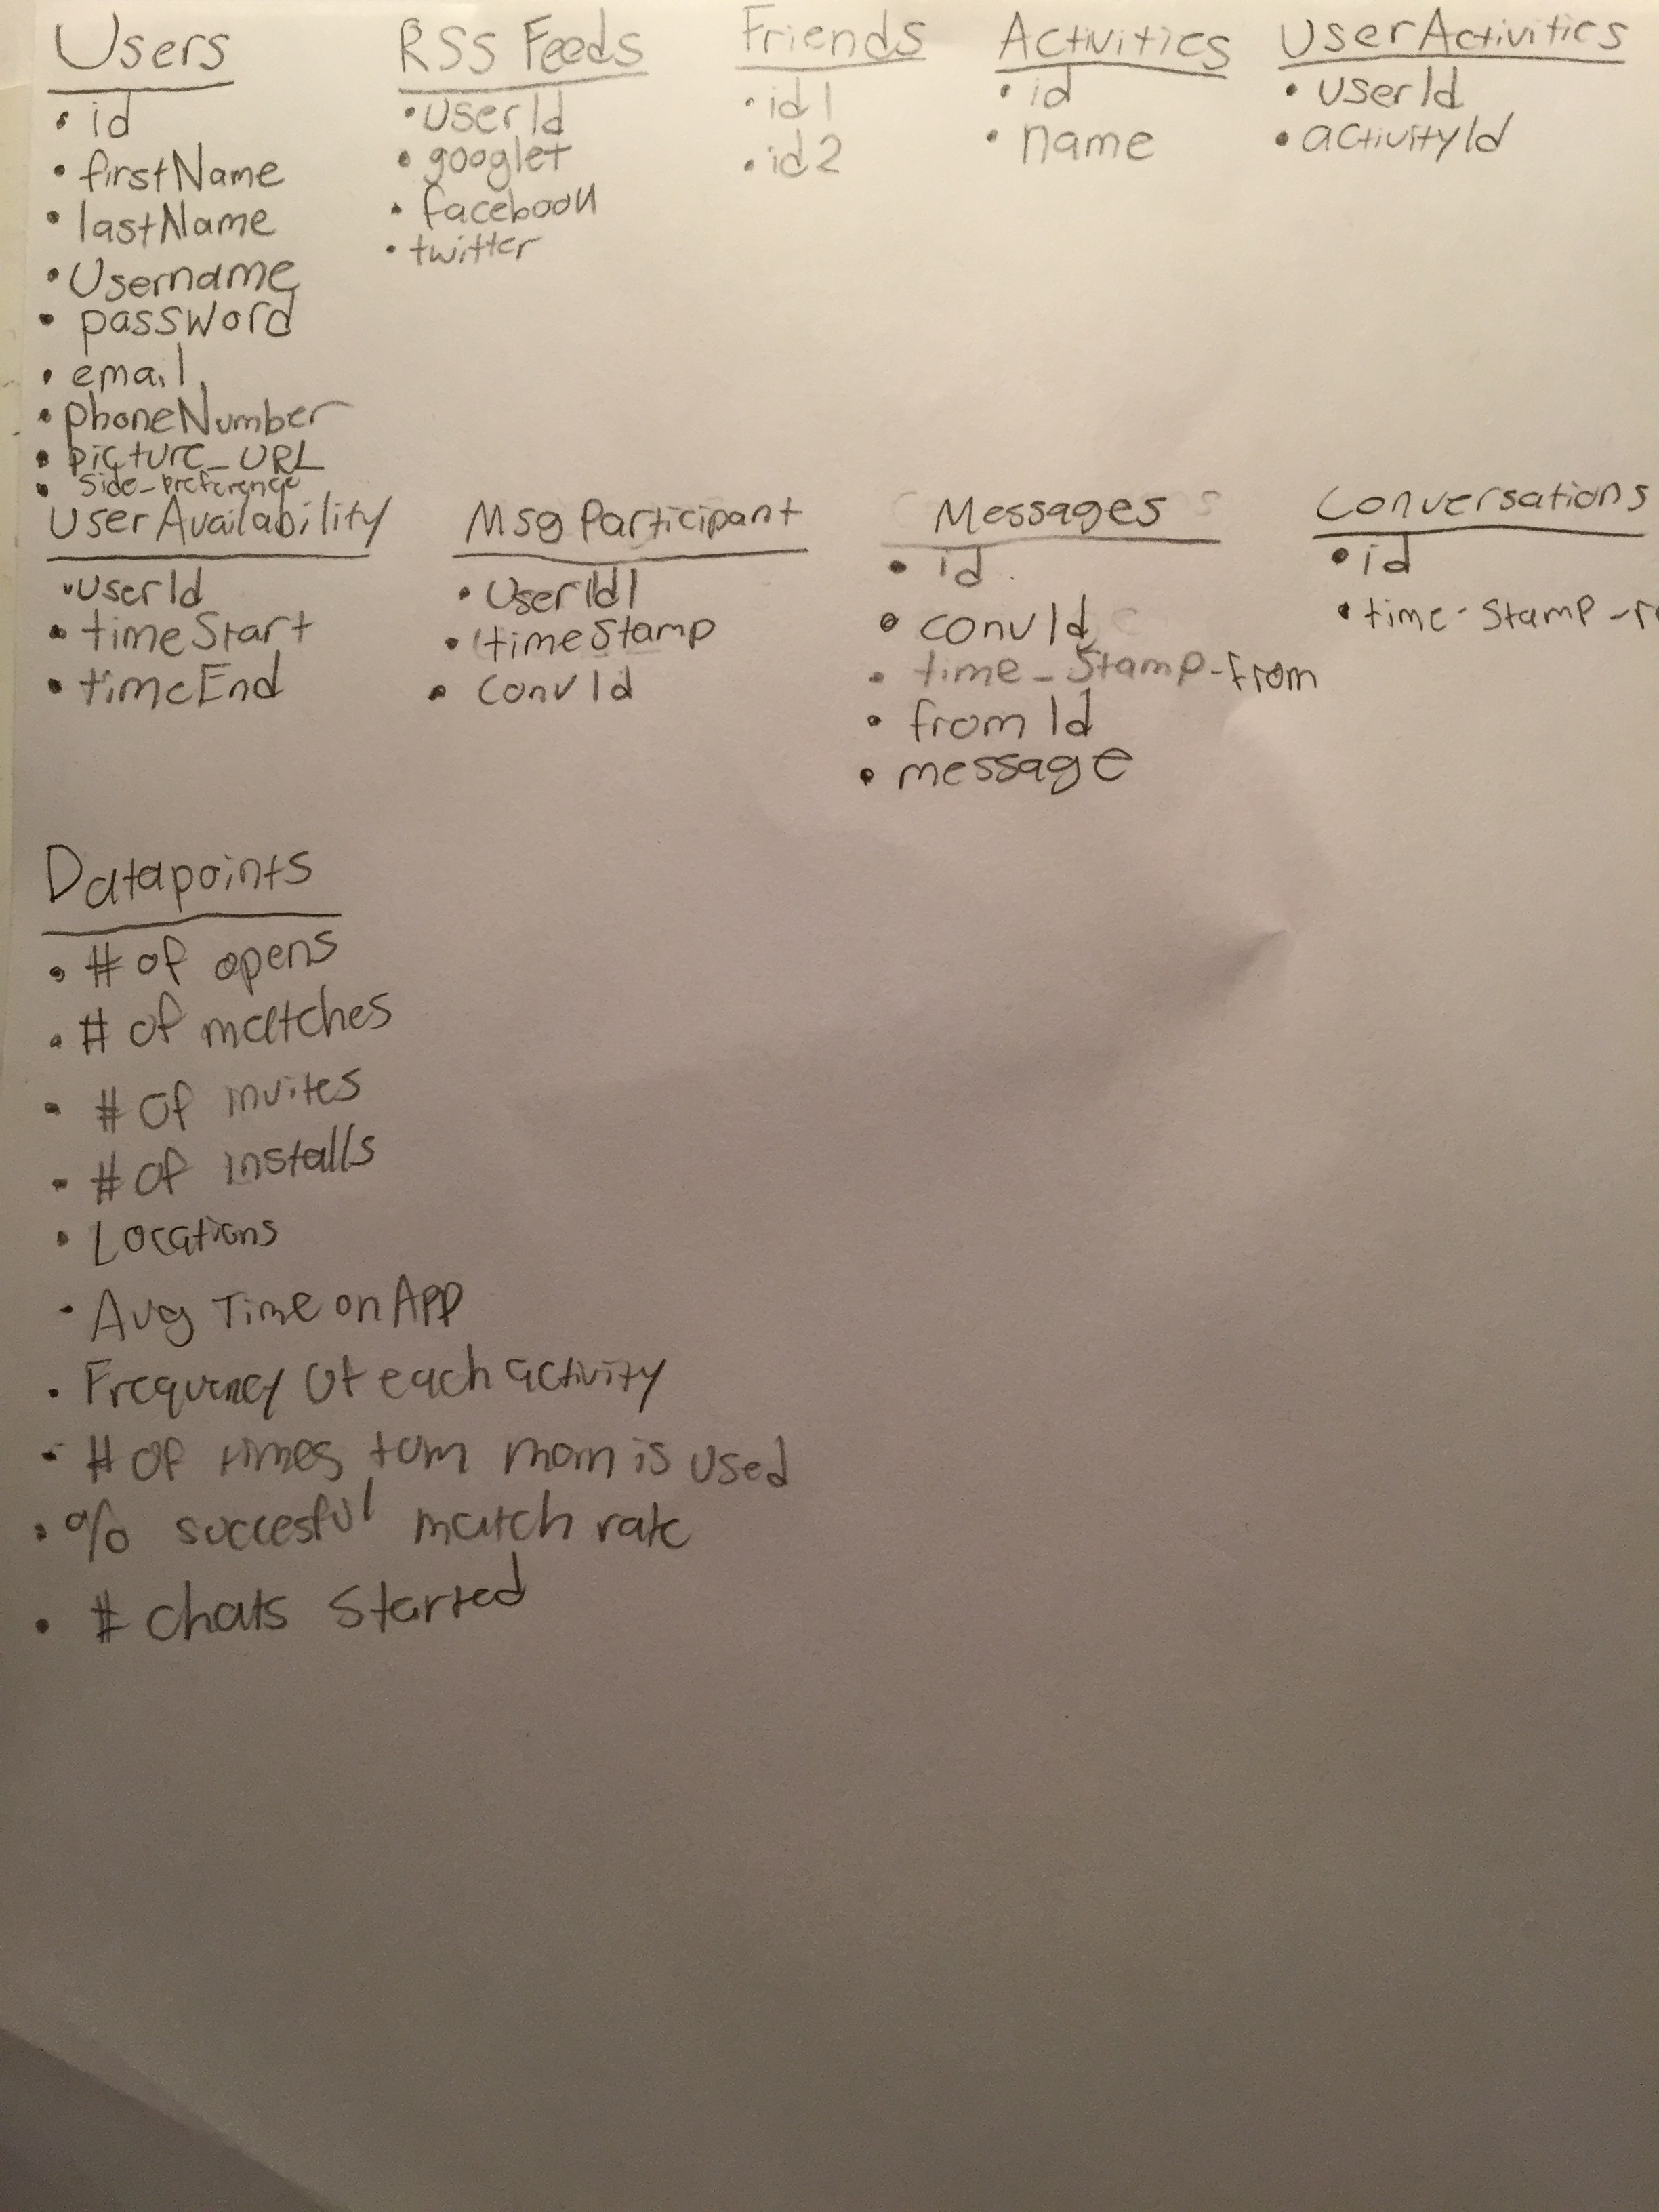 Users
• id
• firstName
• lastName
• Username
• password
• email
• phoneNumber
• picture_URL
• side_preference
RSS Feeds
• UserId
• google+
• facebook
• twitter
Friends
• id1
• id2
Activities
• id
• name
UserActivities
• userId
• activityId
UserAvailability
• userId
• timeStart
• timeEnd
Msg Participant
• UserId1
• timeStamp
• convId
Messages
• id
• convId
• time_Stamp-from
• from Id
• message
Conversations
• id
• time-Stamp-
Datapoints
• # of opens
• # of matches
• # of invites
• # of installs
• Locations
• Avg Time on App
• Frequency of each activity
• # of times tom mom is used
• % succesful match rate
• # chats started